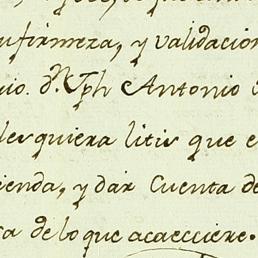 firmeza, y validacion
D.n Jph Antonio
quiera litis que
ienda, y dar Cuenta de
de lo que acaecciere.